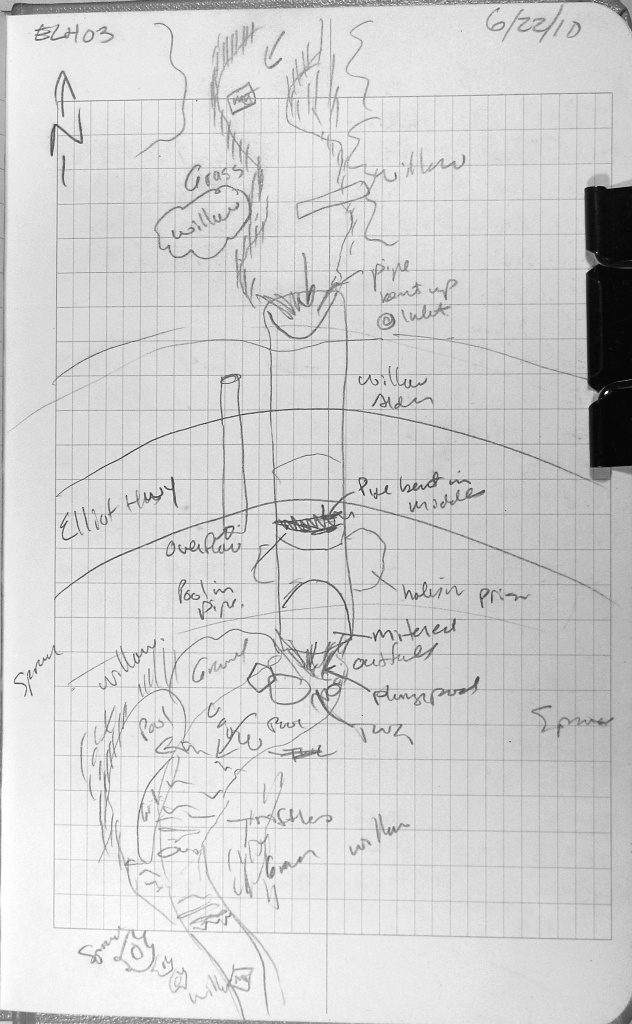 ELH03
6/22/10
N
Grass
willow
willow
pipe
bent up
@ Inlet
willow
Alder
Elliot Hwy
Pipe bent in
middle
overflow
Pool in
Pipe.
holes in
mitered
outfall
Spruce
willow.
Gravel
plunge pool
Pool
Spruce
willow
Spruce
willow